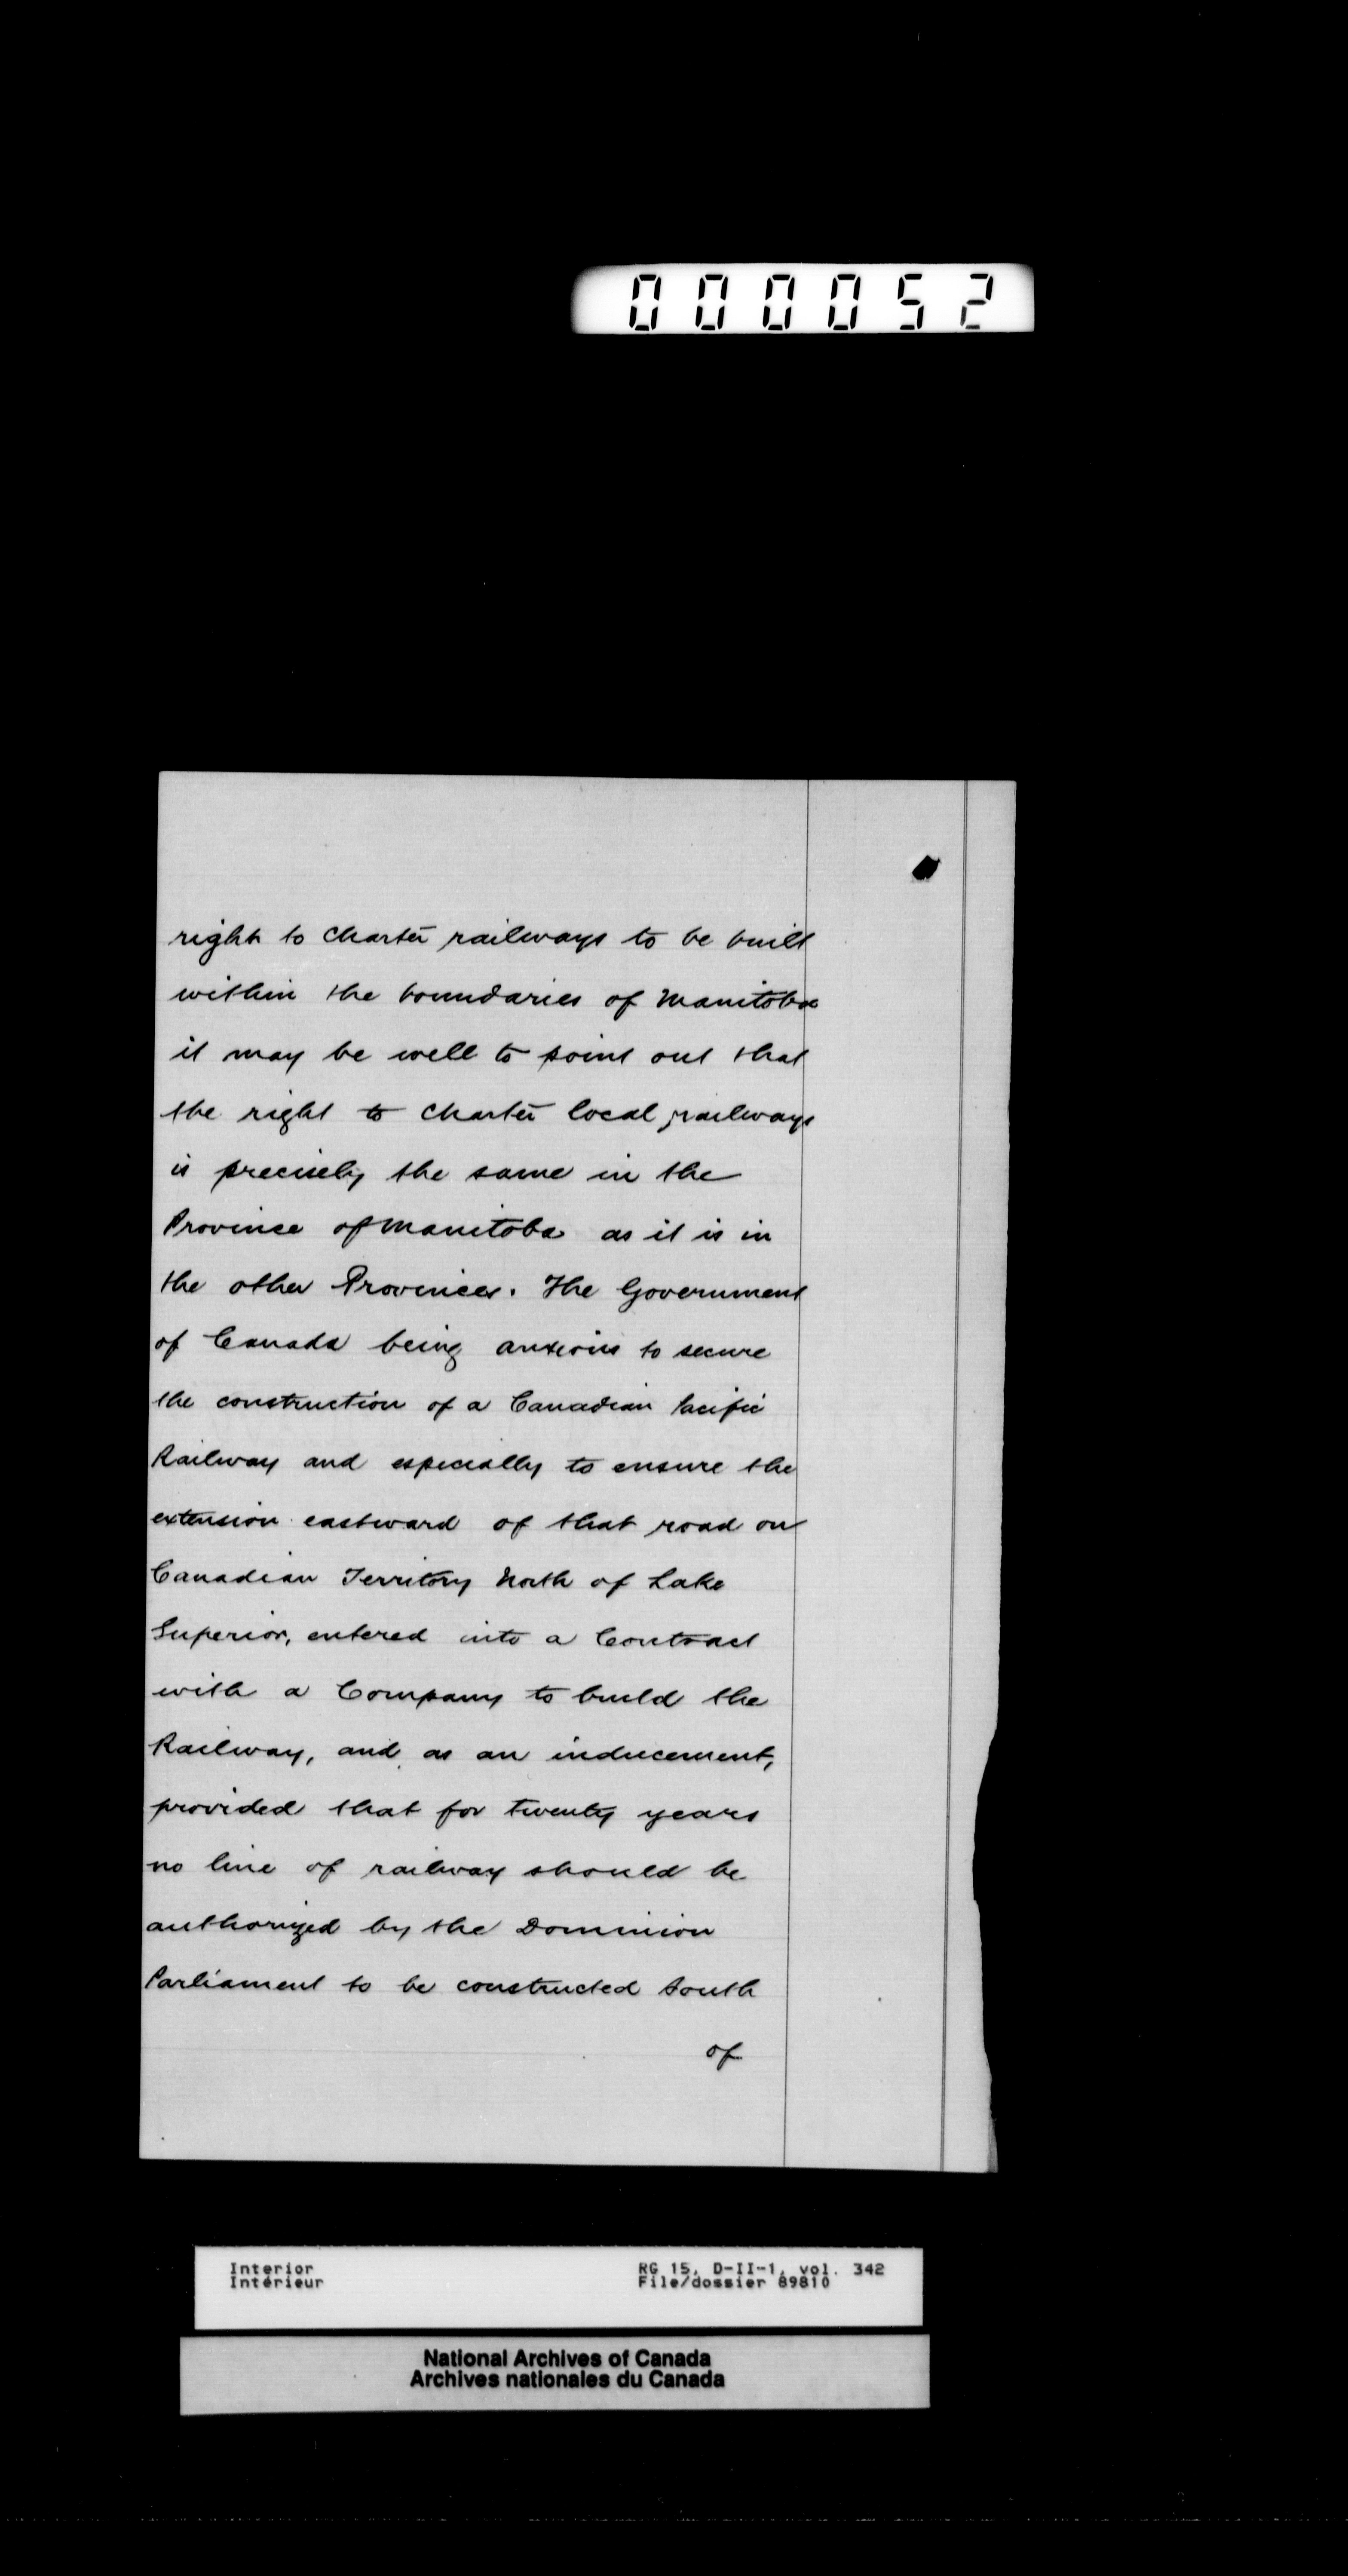 000052
right to charter railways to be built
within the boundaries of Manitoba
it may be well to point out that
the right to charter local railways
is precisely the same in the
Province of Manitoba as it is in
the other Provinces. The Government
of Canada being anxious to secure
the construction of a Canadian Pacific
Railway and especially to ensure the
extension eastward of that road on
Canadian Territory North of Lake
Superior, entered into a Contract
with a Company to build the
Railway, and, as an inducement,
provided that for twenty years
no line of railway should be
authorized by the Dominion
Parliament to be constructed South
of
Interior RG 15, D-II-1, vol. 342
Intérieur File/dossier 89810
National Archives of Canada
Archives nationales du Canada